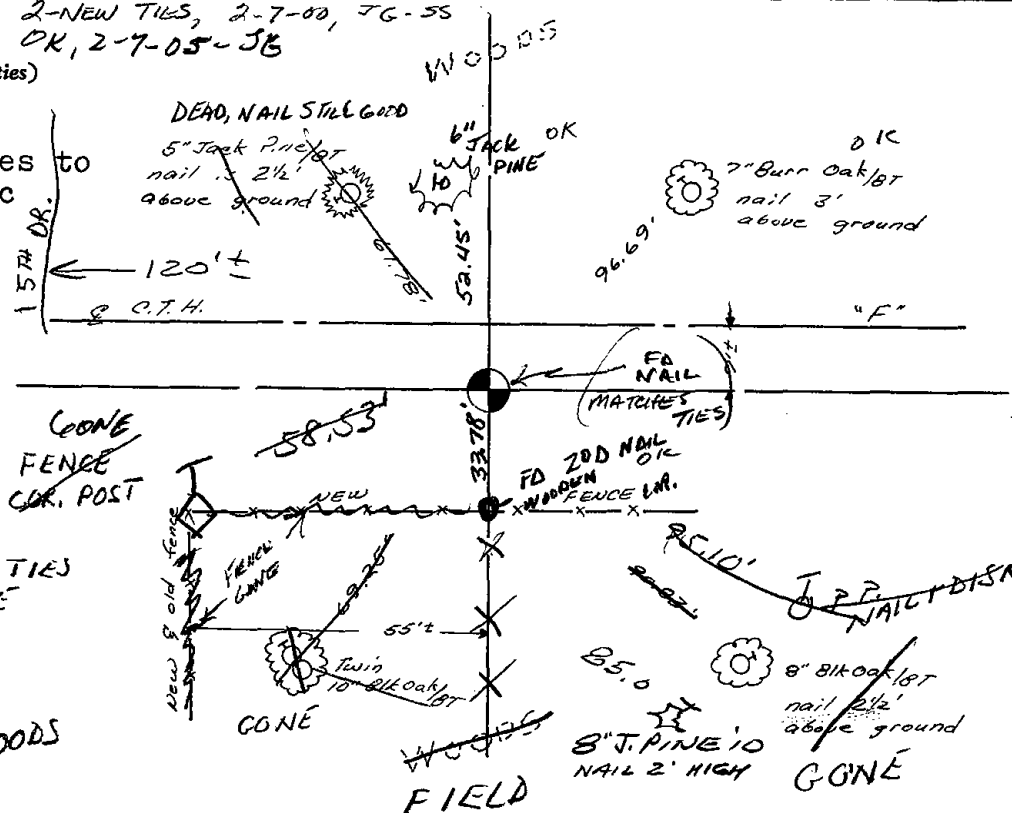 2-NEW TIES, 2-7-00, JG-SS
OK, 2-7-05-JG
ties)
WOODS
DEAD, NAIL STILL GOOD
5" Jack Pine/BT
nail is 2½'
above ground
6" JACK PINE OK
10
OK
7" Burr Oak/BT
nail 3'
above ground
es to
c
15TH DR.
120'±
61.78'
52.45'
96.69'
℄ C.T.H.
"F"
9'±
FD
NAIL
(MATCHES TIES)
58.53
33.78'
GONE
FENCE
COR. POST
FD 20D NAIL
OK
WOODEN
FENCE LN.
NEW
TIES
New & old fence
FENCE
GONE
69.26
55'±
85.10'
P.P.
NAIL & DISK
Twin
10" Blk Oak/BT
GONE
85.0
8" Blk Oak/BT
nail 2½'
above ground
GONE
OODS
WOODS
8" J. PINE 10
NAIL 2' HIGH
FIELD